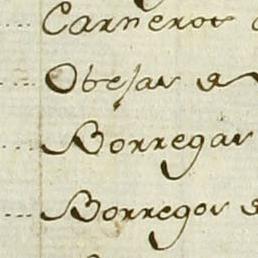 Carneros
Obejas
Borregas
Borregos